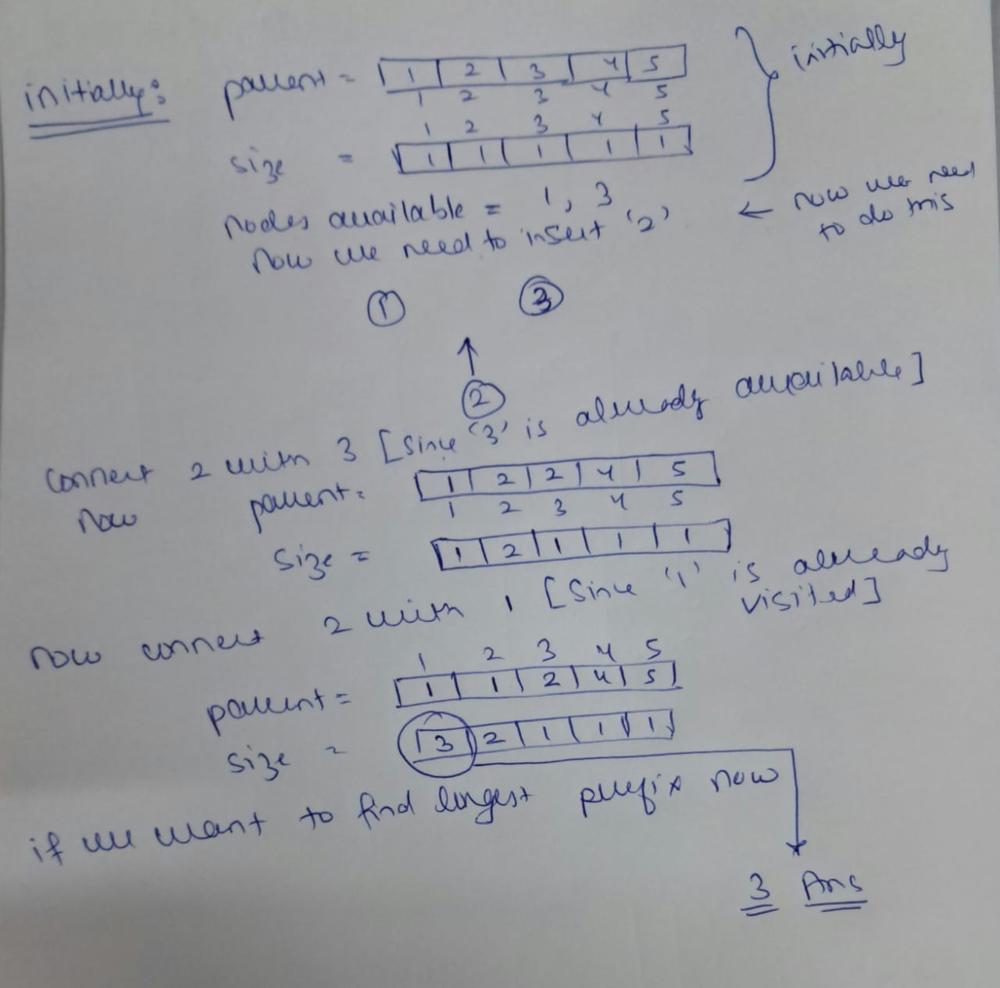 initially: parent = | 1 | 2 | 3 | 4 | 5 | } initially
1 2 3 4 5
1 2 3 4 5
size = | 1 | 1 | 1 | 1 | 1 |
nodes available = 1, 3
now we need to insert '2' ← now we need to do this
1 3
↑
2
connect 2 with 3 [since '3' is already available]
now parent = | 1 | 2 | 2 | 4 | 5 |
1 2 3 4 5
size = | 1 | 2 | 1 | 1 | 1 |
now connect 2 with 1 [since '1' is already visited]
1 2 3 4 5
parent = | 1 | 1 | 2 | 4 | 5 |
size = | 3 | 2 | 1 | 1 | 1 |
if we want to find longest prefix now
3 Ans